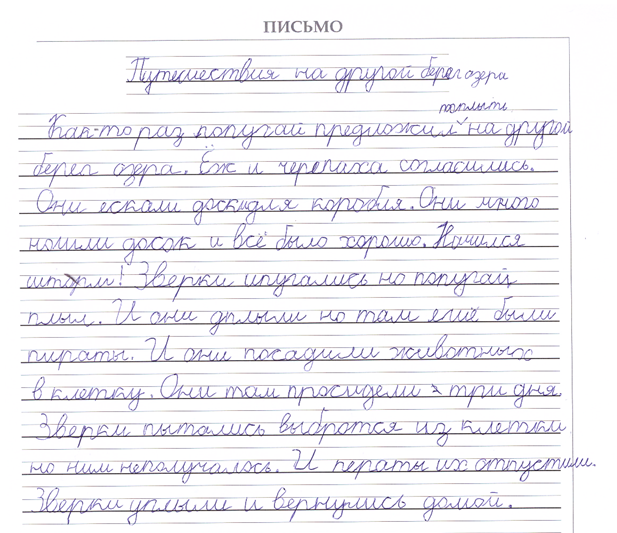 ПИСЬМО
Путешествия на другой берег озера
поплыть
Как-то раз попугай предложил на другой
берег озера. Ёж и черепаха согласились.
Они ескали доски для коробля. Они много
ношли досок и всё было хорошо. Начился
шторм! Зверки ипугались но попугай
плыл. И они уплыли но там ещё были
пираты. И они посадили животных
в клетку. Они там просидели три дня.
Зверки пытались выбротся из клетки
но ним неполучалось. И ператы их отпустили.
Зверки уплыли и вернулись домой.